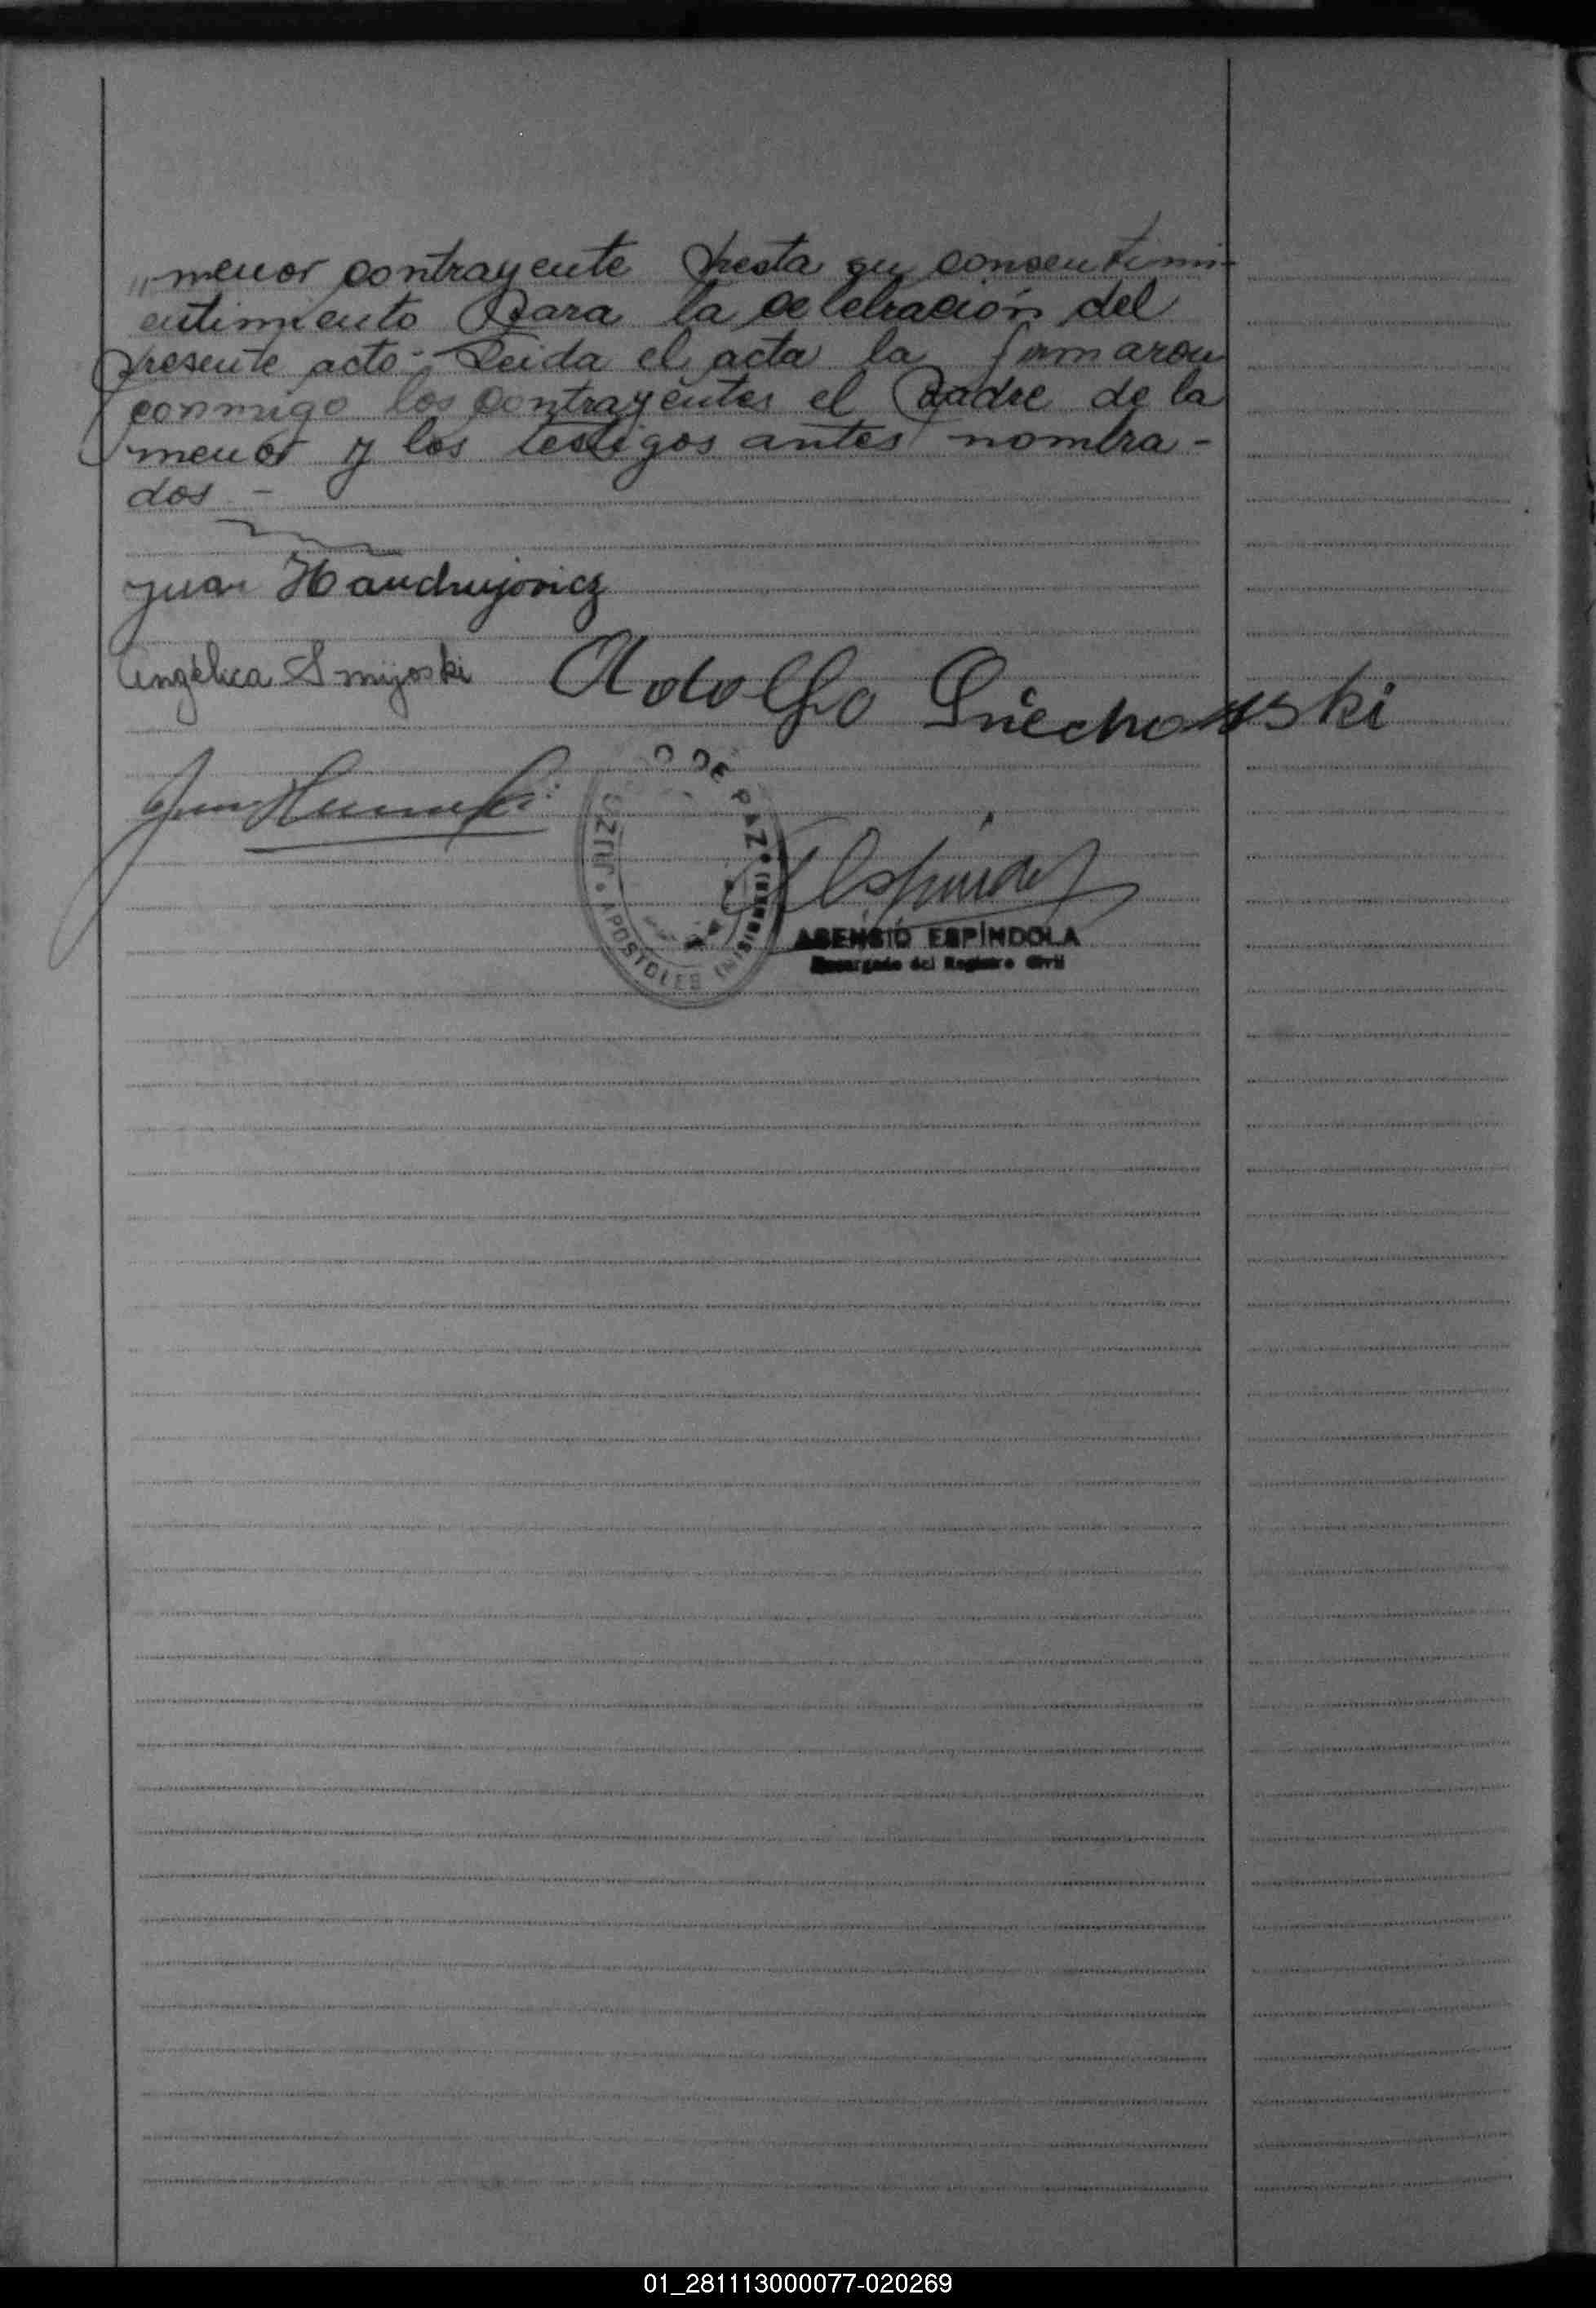 „menor contrayente presta su consentimi-
entimiento para la celebración del
presente acto - Leida el acta la firmaron
conmigo los contrayentes el padre de la
menor y los testigos antes nombra-
dos -
Juan Handrujovicz
Angélica Smijoski
Adolfo Sniechowski
Juan
JUZGADO DE PAZ
APOSTOLES (MISIONES)
ASENSIO ESPÍNDOLA
Encargado del Registro Civil
01_281113000077-020269